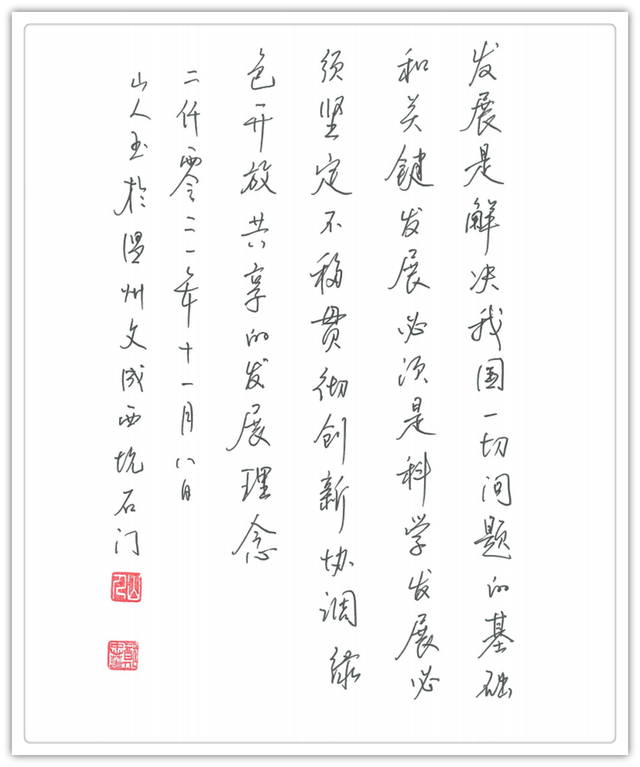 发展是解决我国一切问题的基础
和关键发展必须是科学发展必
须坚定不移贯彻创新协调绿
色开放共享的发展理念
二仟零二一年十一月八日
山人玉於温州文成西坑石门